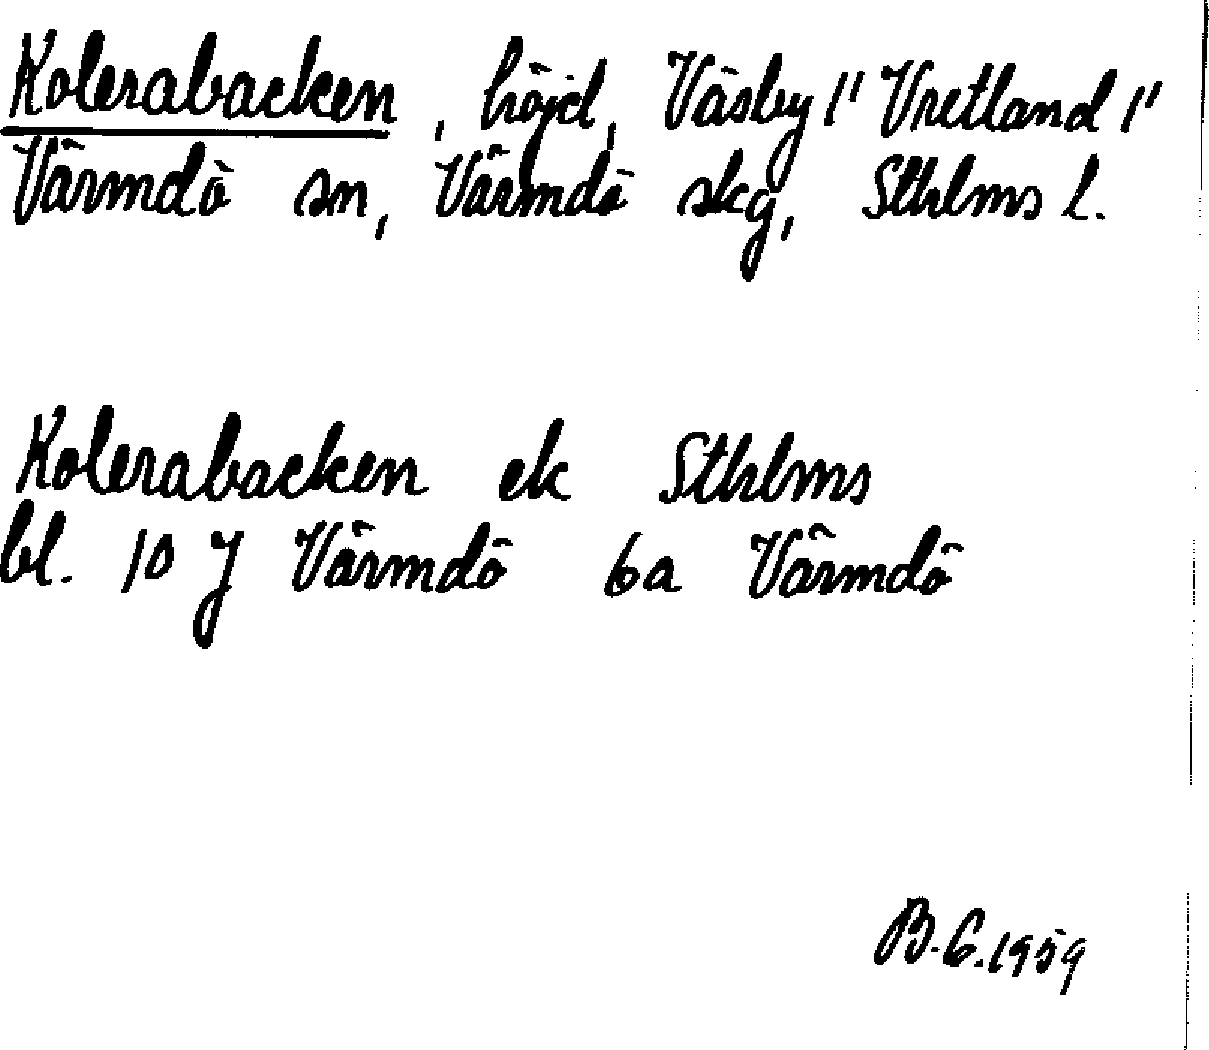 Kolerabacken, höjd, Väsby 1" Vretland 1"
Värmdö sn, Värmdö skg, Sthlms l.
Kolerabacken ek Sthlms
bl. 10 J Värmdö 6a Värmdö
B.G.1959